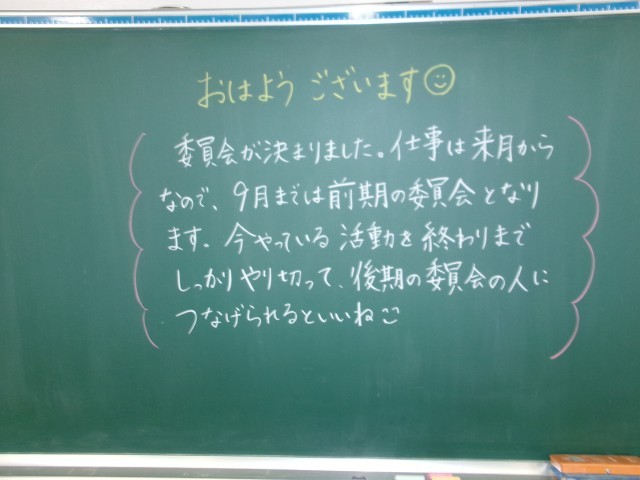 おはようございます
委員会が決まりました。仕事は来月から
なので、9月までは前期の委員会となり
ます。今やっている活動を終わりまで
しっかりやり切って、後期の委員会の人に
つなげられるといいね